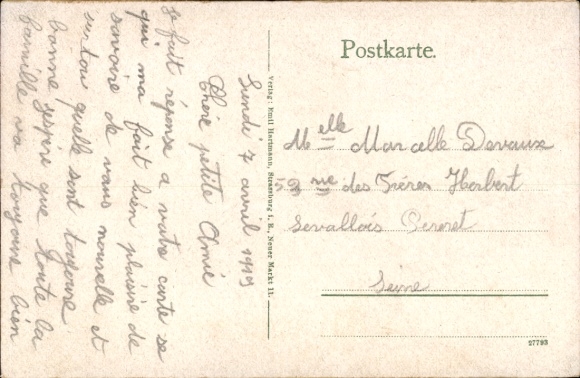 Postkarte.
Lundi 7 avril 1919
Chère petite Amie
Je fait réponse a votre carte se
qui ma fait bien plaisire de
savoire de vaus nouvelle et
surtou quelle sont toujours
bonne jespère que toute la
famille va toujours bien
Verlag: Emil Hartmann, Strassburg i. E., Neuer Markt 11.
Melle Marcelle Devaux
59 rue des Frères Herbert
Levallois Perret
Seine
27793